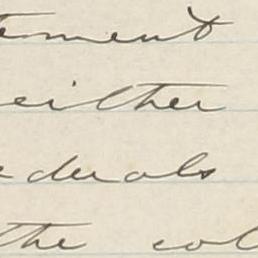 tement
either
ederals
the col